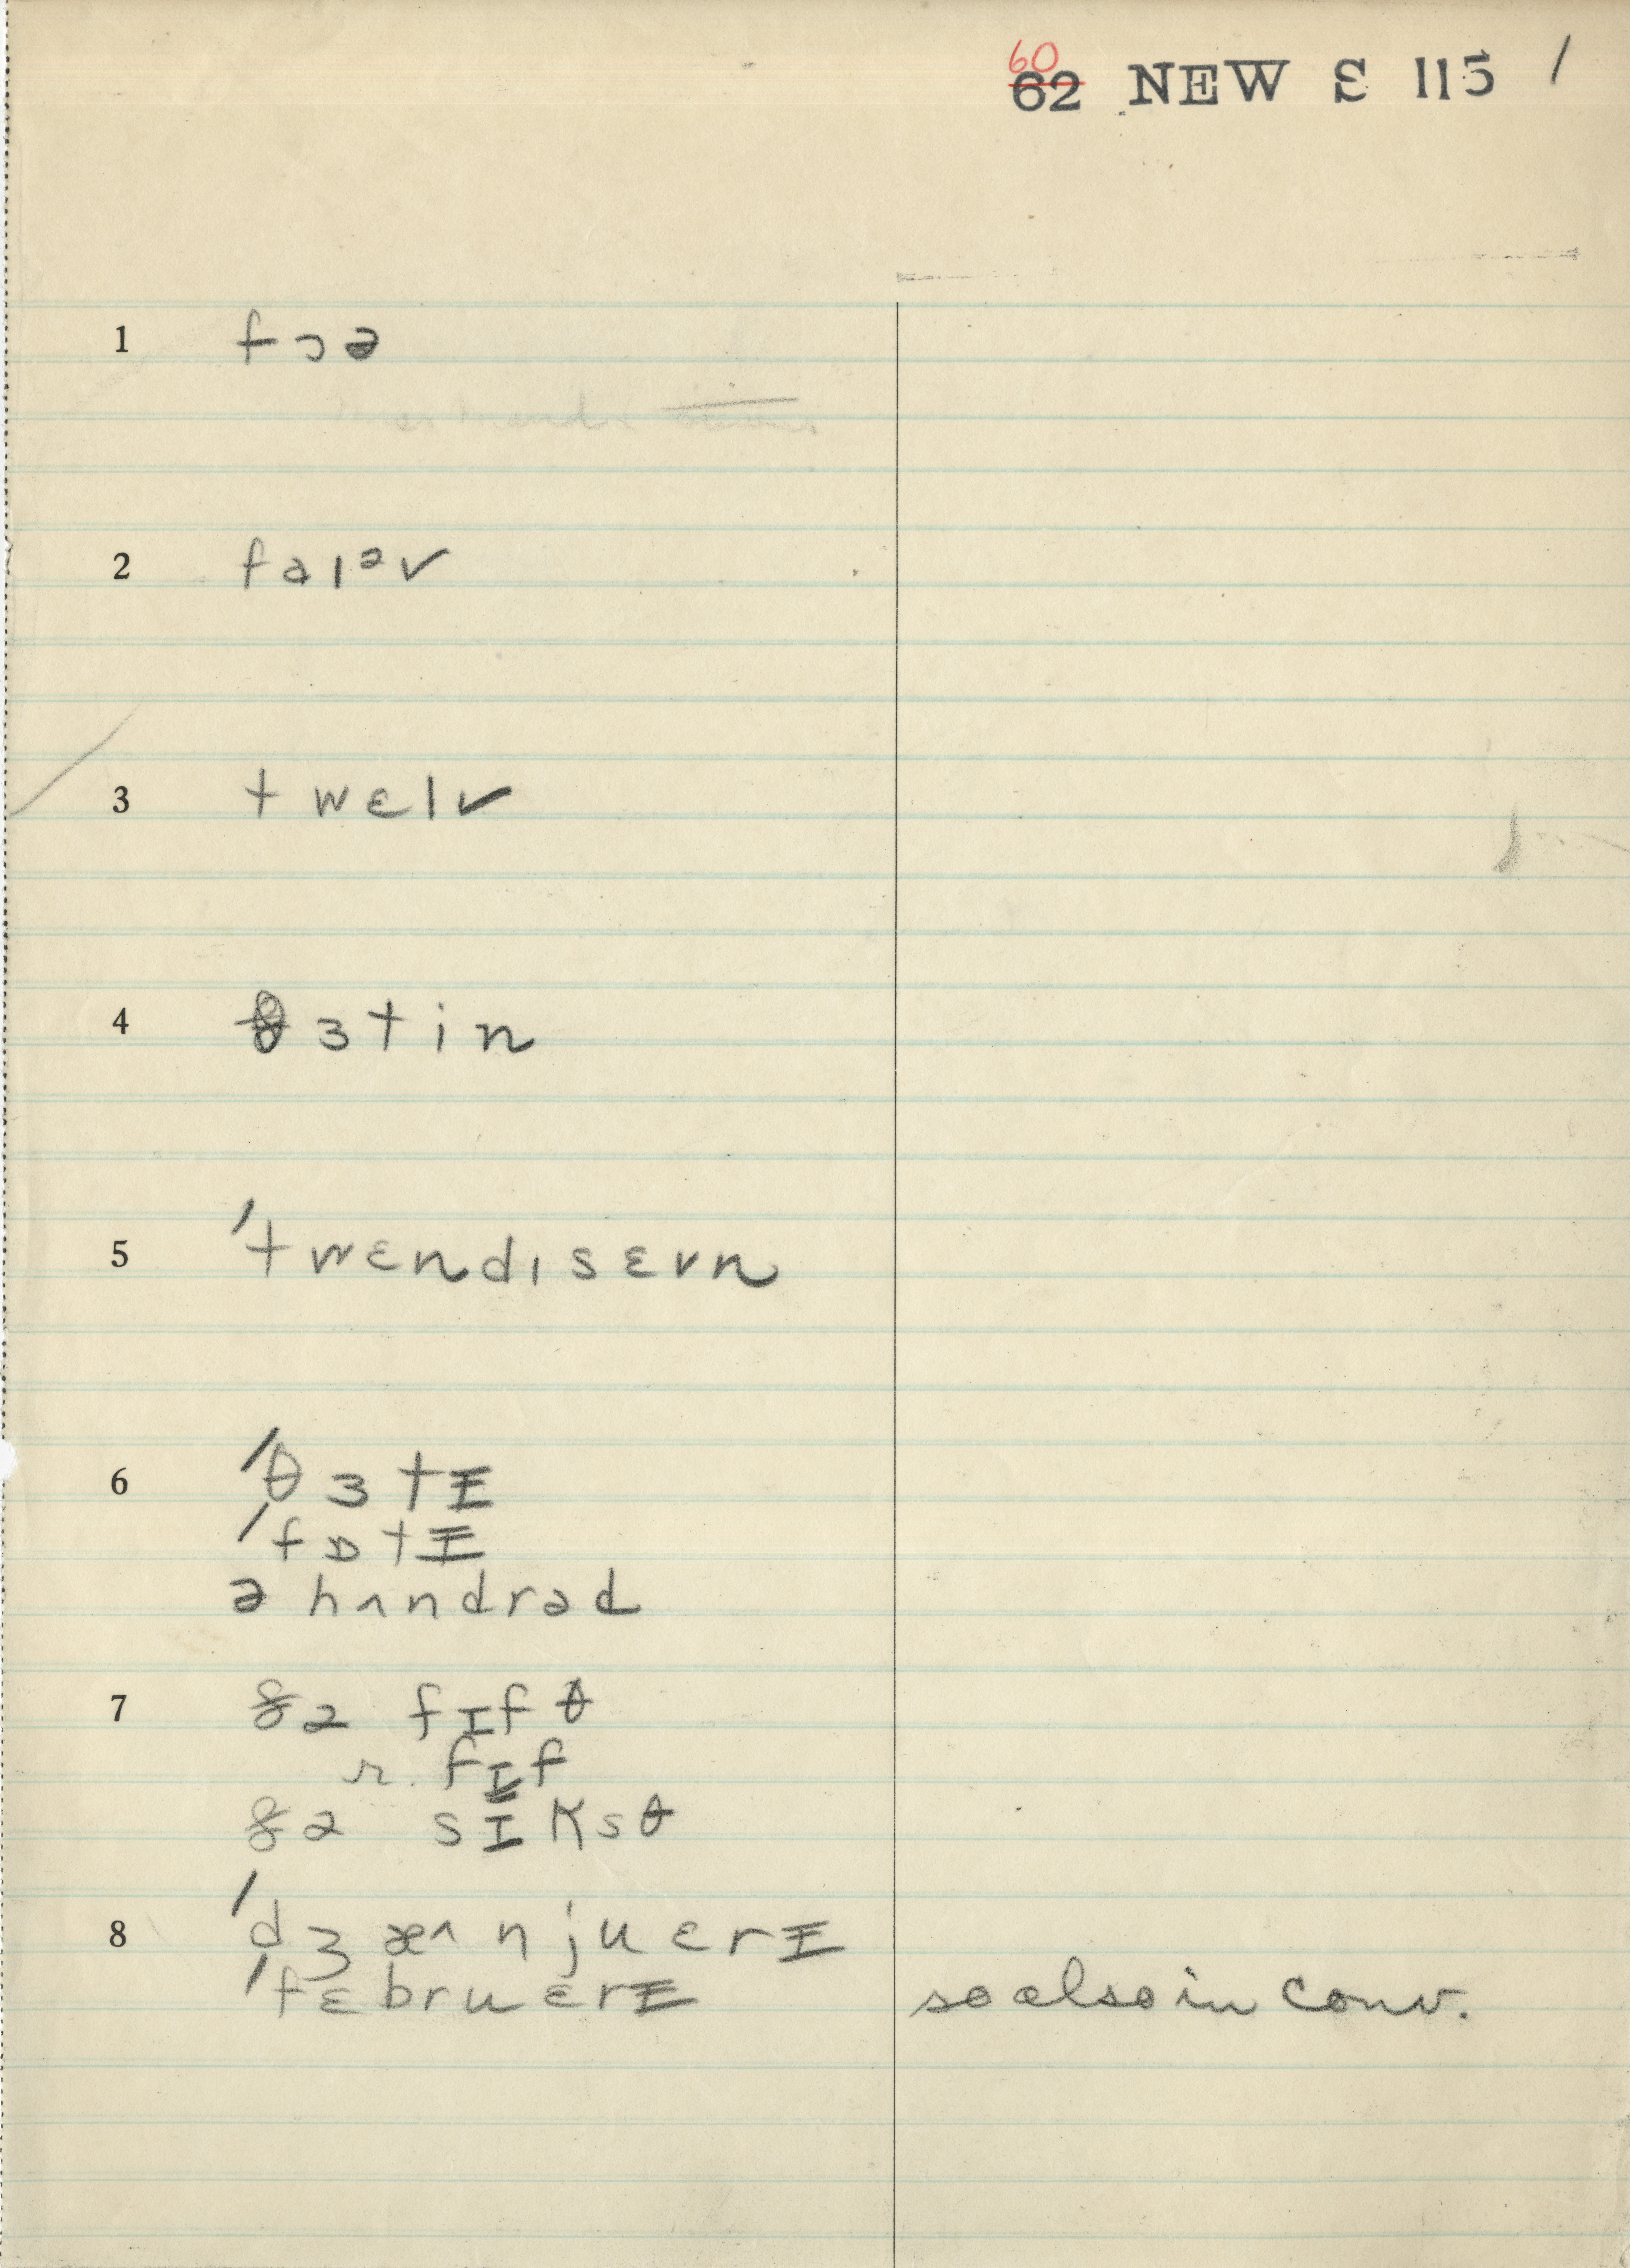 60
62 NEW S 115 /
1 fɔə
2 faɪəv
3 twɛlv
4 θɜtin
5 'twɛndɪsɛvn
6 'θɜtɪ
'fɒtɪ
ə hʌndrəd
7 ðə fɪfθ
r. fɪf
ðə sɪksθ
8 'dʒæ^njuɛrɪ
'fɛbruɛrɪ so also in conv.